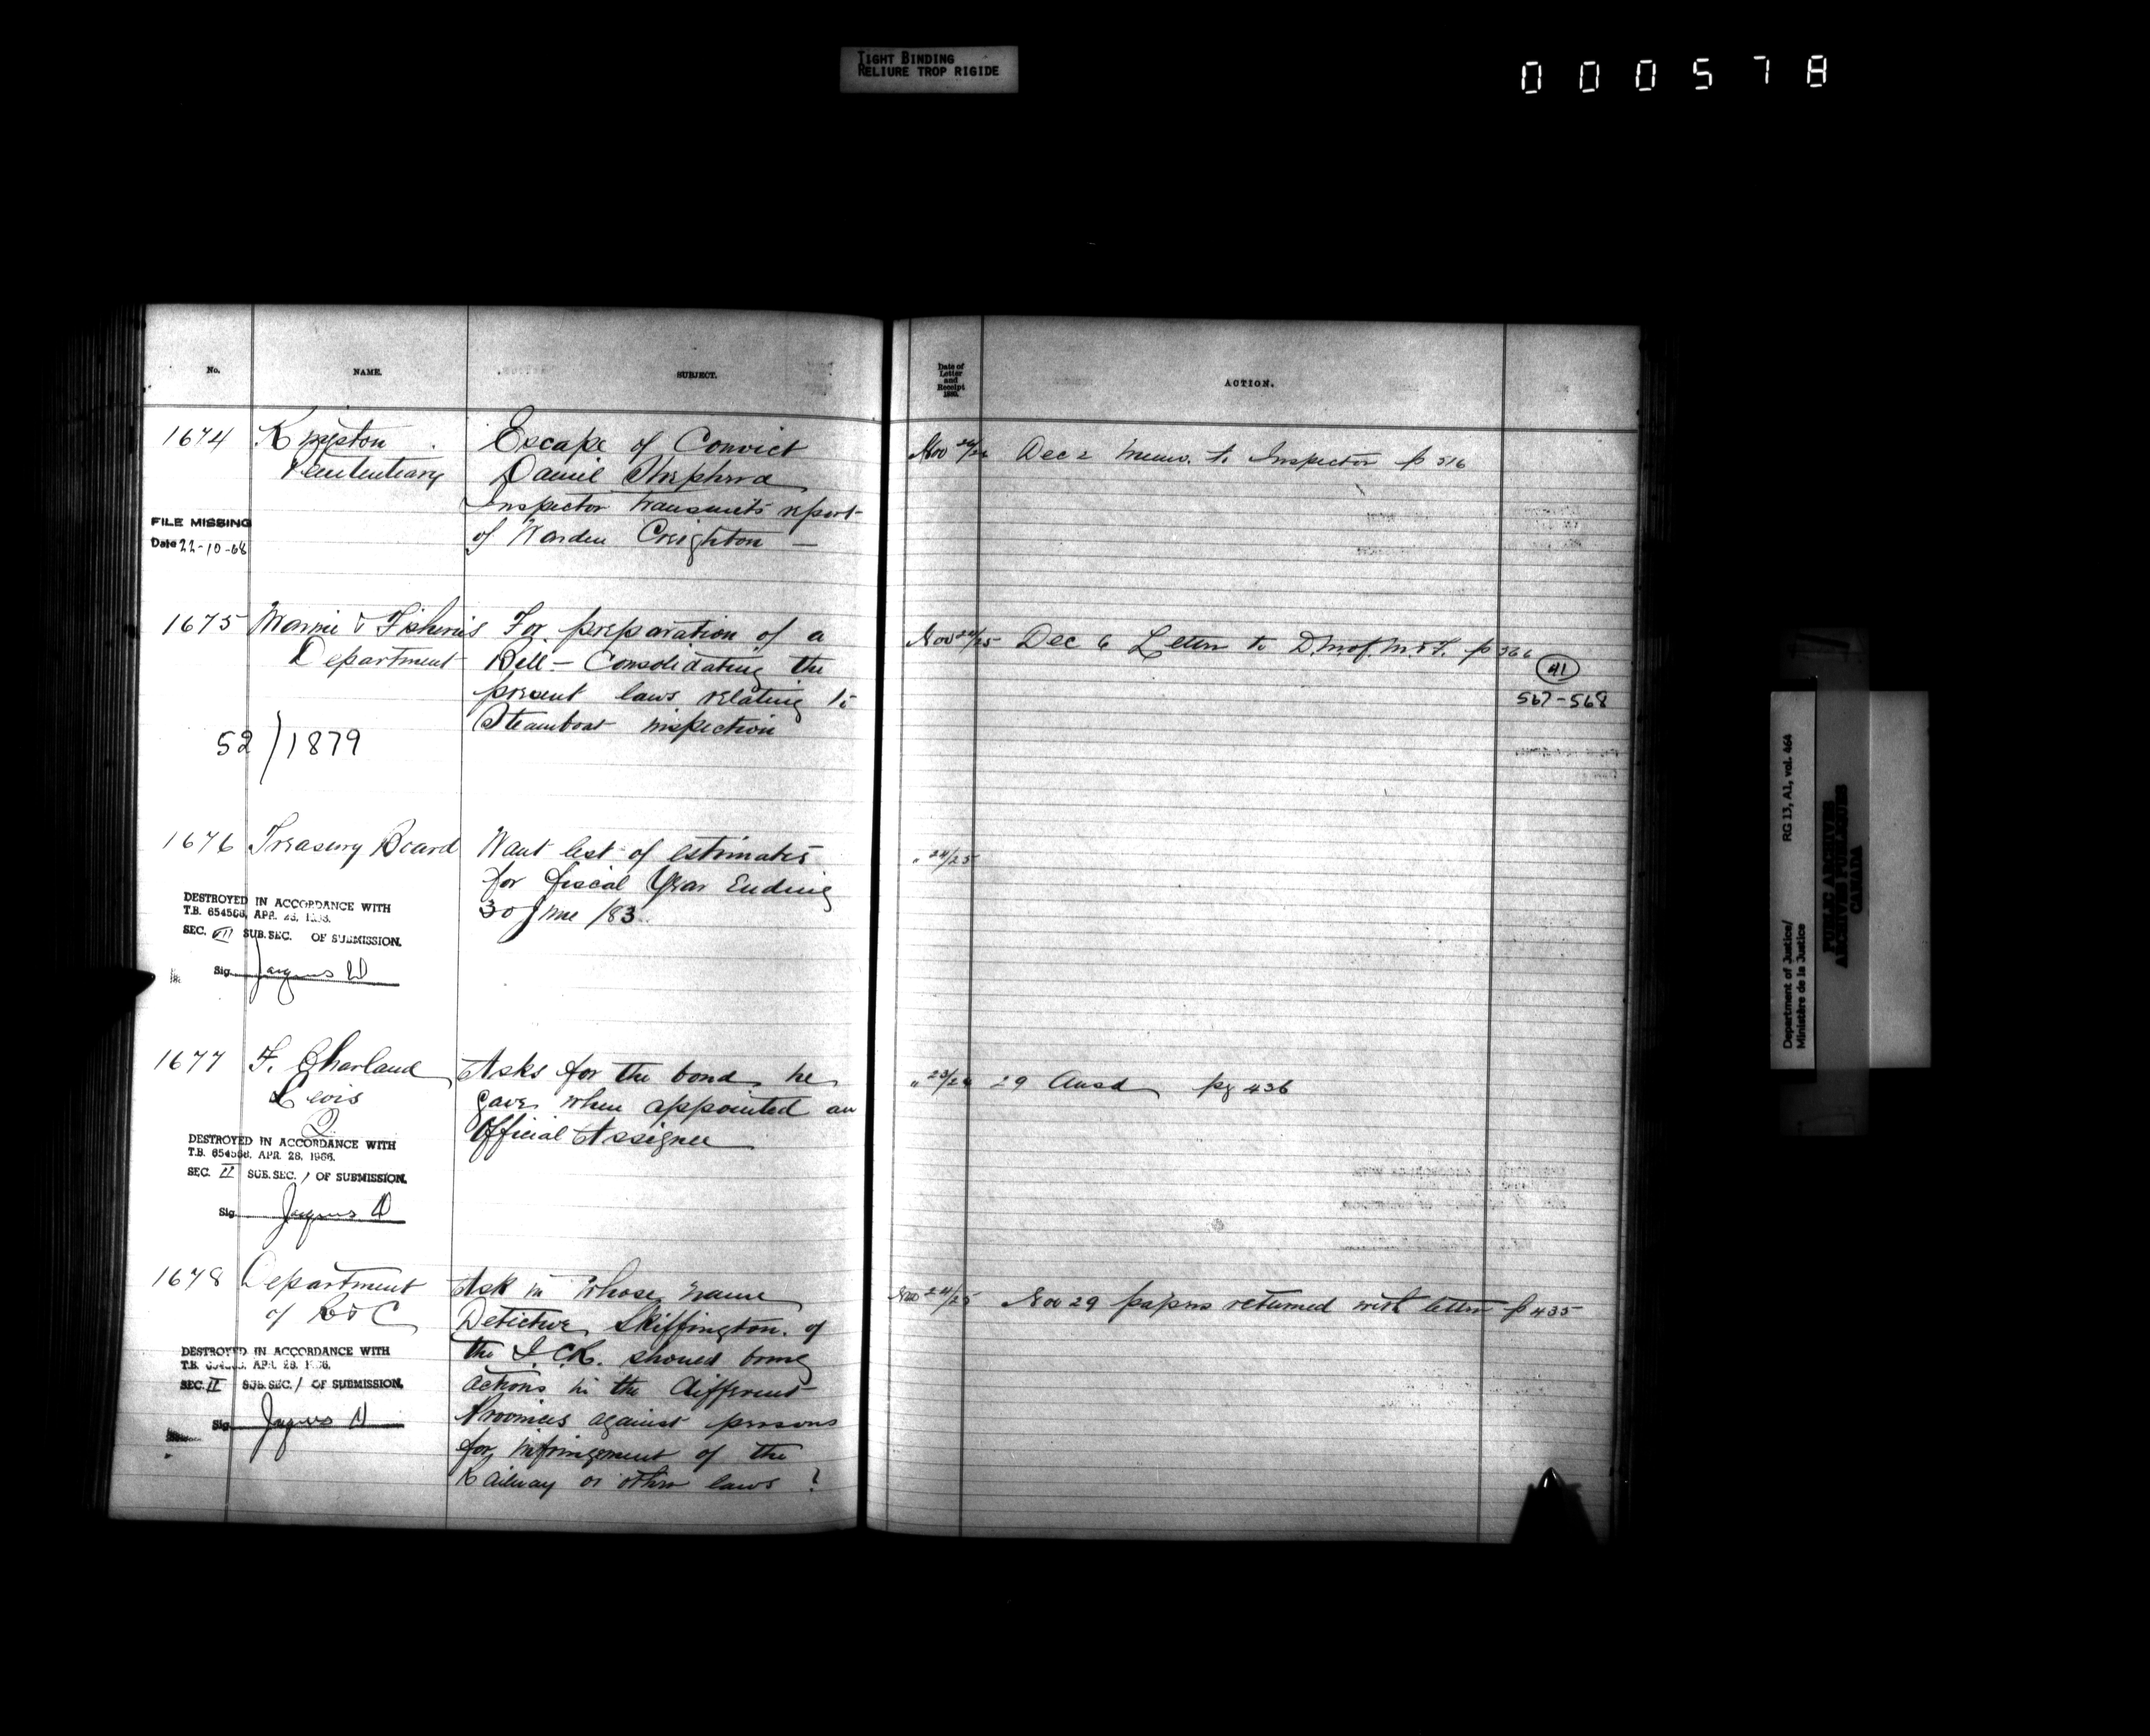 TIGHT BINDING
RELIURE TROP RIGIDE
000578
No. NAME. SUBJECT.
1674 Kingston Penitentiary
Escape of Convict
Daniel Shepherd
Inspector transmits report
of Warden Creighton —
FILE MISSING
Date 22-10-68
1675 Marine & Fisheries
Department
For preparation of a
Bill - Consolidating the
present laws relating to
Steamboat inspection
52/1879
1676 Treasury Board
Want list of estimates
for fiscal Year Ending
30 June /83.
DESTROYED IN ACCORDANCE WITH
T.B. 654568, APR. 28,
SEC. VII SUB. SEC. OF SUBMISSION.
Sig. Jacques D
1677 F. Charland
Levis
Q.
Asks for the bond he
gave when appointed an
Official Assignee
DESTROYED IN ACCORDANCE WITH
T.B. 654568, APR. 28, 1966.
SEC. II SUB. SEC. / OF SUBMISSION.
Sig. Jacques D
1678 Department
of R & C
Ask in whose name
Detective Skiffington of
the I.C.R. should bring
actions in the different
Provinces against persons
for infringement of the
Railway or other laws ?
DESTROYED IN ACCORDANCE WITH
T.B. APR. 28,
SEC. II SUB. SEC. / OF SUBMISSION.
Sig. Jacques D
Date of
Letter
and
Receipt
ACTION.
Nov Dec 2 Memo. to Inspector p 516
Nov 24/25 Dec 6 Letter to D.M. of M. & F. p 566
41
567-568
" 24/25
" 23/24 29 Ansd pg 436
Nov 24/25 Nov 29 papers returned with letter p 435
Department of Justice/
Ministère de la Justice
RG 13, A1, vol. 464
PUBLIC ARCHIVES
ARCHIVES PUBLIQUES
CANADA